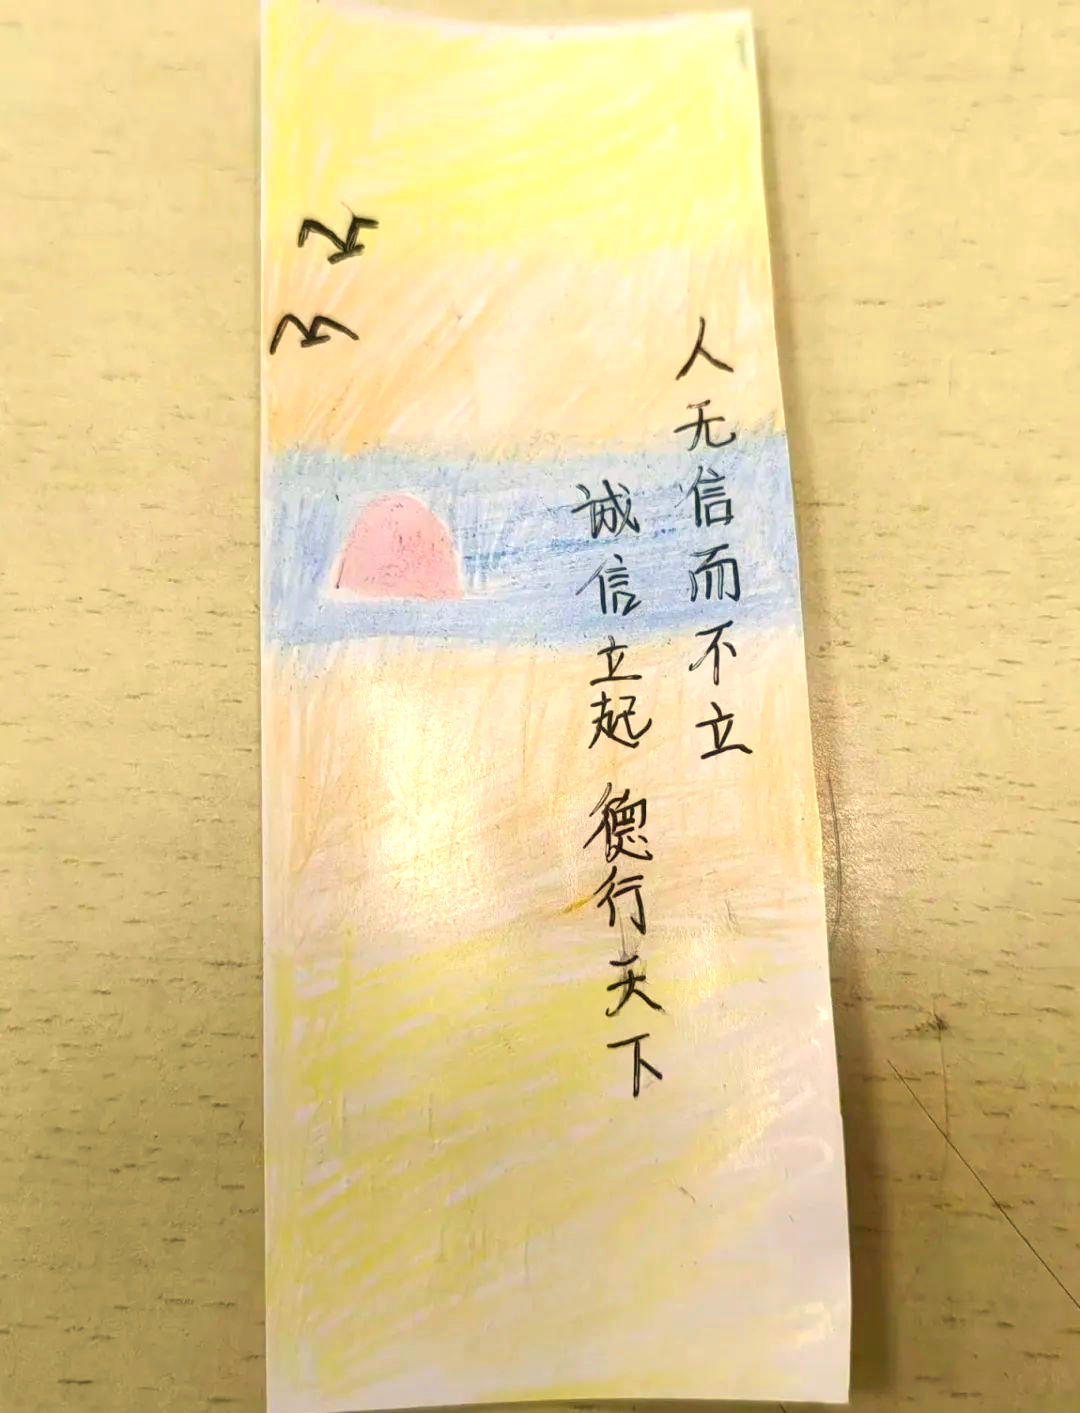 人无信而不立
诚信立起 德行天下